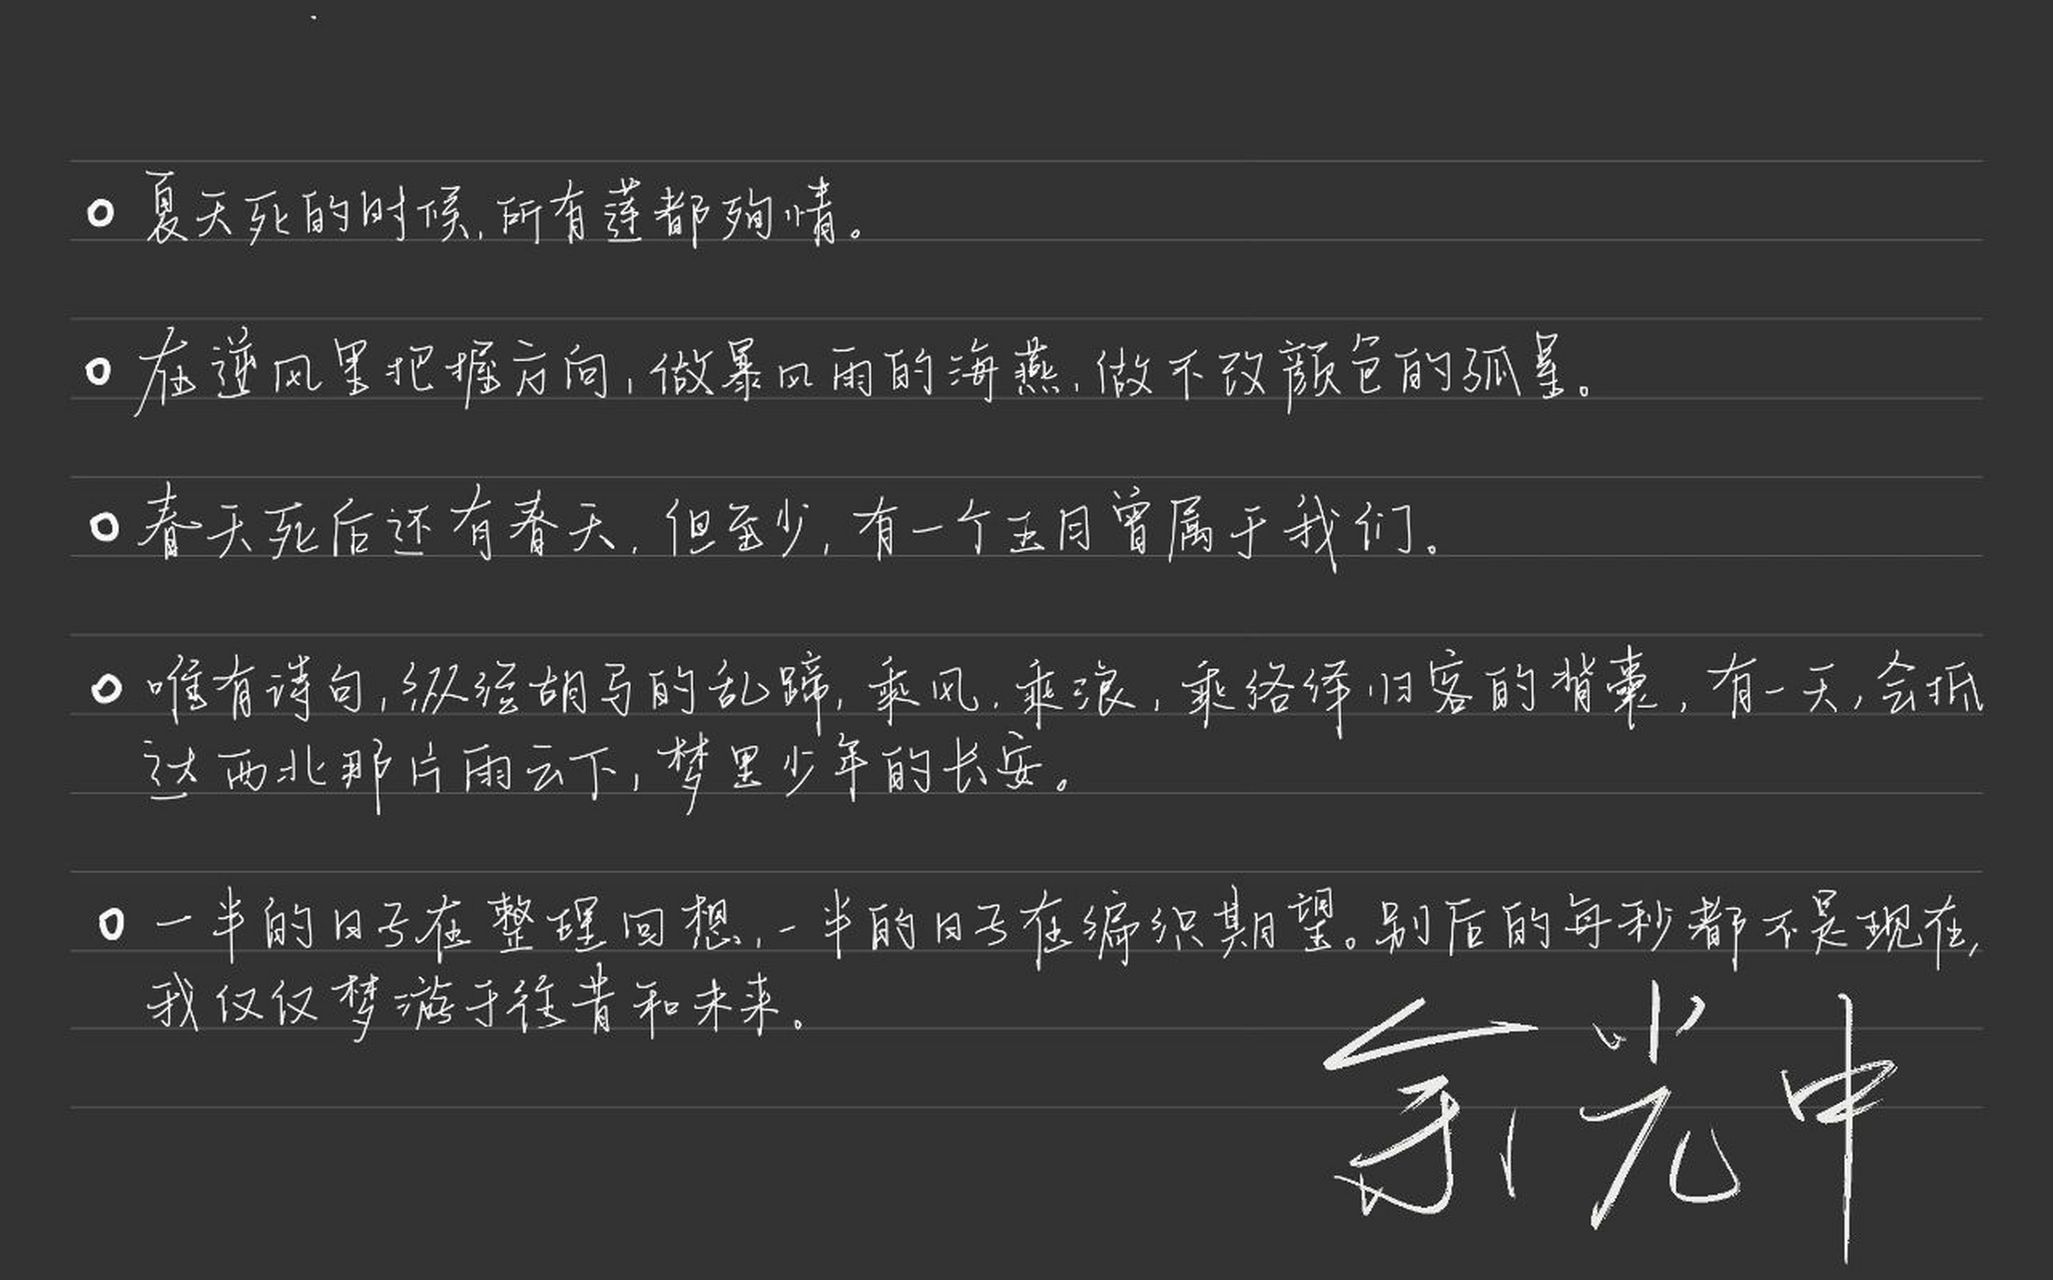 夏天死的时候,所有莲都殉情。
在逆风里把握方向,做暴风雨的海燕,做不改颜色的孤星。
春天死后还有春天,但至少,有一个五月曾属于我们。
唯有诗句,纵经胡马的乱蹄,乘风,乘浪,乘络绎归客的背囊,有一天,会抵
达西北那片雨云下,梦里少年的长安。
一半的日子在整理回想,一半的日子在编织期望。别后的每秒都不是现在,
我仅仅梦游于往昔和未来。
余光中